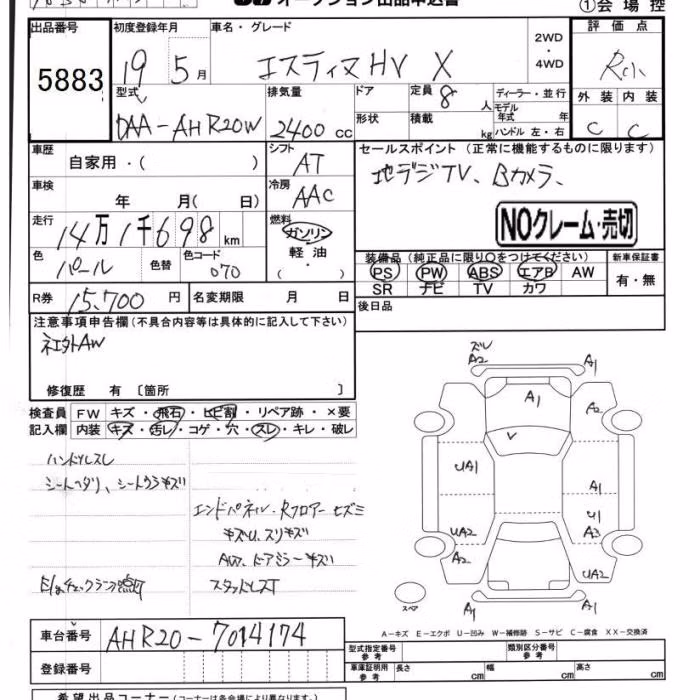 オークション出品申込書
①会場控
出品番号 初度登録年月 車名・グレード 評価点
5883 19年5月 エスティマHV X 2WD・4WD R小
型式 排気量 ドア 定員 8人 ディーラー・並行 外装 内装
DAA-AHR20W 2400cc 形状 積載 kg モデル年式 年 ハンドル 左・右 C C
車歴 自家用・( ) シフト AT セールスポイント (正常に機能するものに限ります)
車検 年 月( 日) 冷房 AAC 地デジTV、Bカメラ、
走行 14万1千698km 燃料 ガソリン・軽油・( ) NOクレーム・売切
色 パール 色替 色コード 070 装備品(純正品に限り○をつけてください) 新車保証書
PS PW ABS エアB AW 有・無
SR ナビ TV カワ
R券 15,700円 名変期限 月 日 後日品
注意事項申告欄(不具合内容等は具体的に記入して下さい)
社外AW
修復歴 有 〔箇所 〕
検査員 FW キズ・飛石・ヒビ割・リペア跡・×要
記入欄 内装 キズ・汚レ・コゲ・穴・スレ・キレ・破レ
ハンドルスレ
シートヘタリ、シートウラキズ
エンドパネル・Rフロアーヒズミ
キズU、スリキズ
AW、ドアミラーキズ
E/gチェックランプ点灯 スタッドレスT
ズレ
A2 A1
A1 A2
V
UA1 A1
U1
UA2 A3
A2 UA2
スペア A1 A1
A-キズ E-エクボ U-凹み W-補修跡 S-サビ C-腐食 XX-交換済
車台番号 AHR20-7014174
型式指定番号 参考 類別区分番号 参考
登録番号 車庫証明用 参考 長さ cm 幅 cm 高さ cm
希望出品コーナー(コーナーは各会場により異なります)